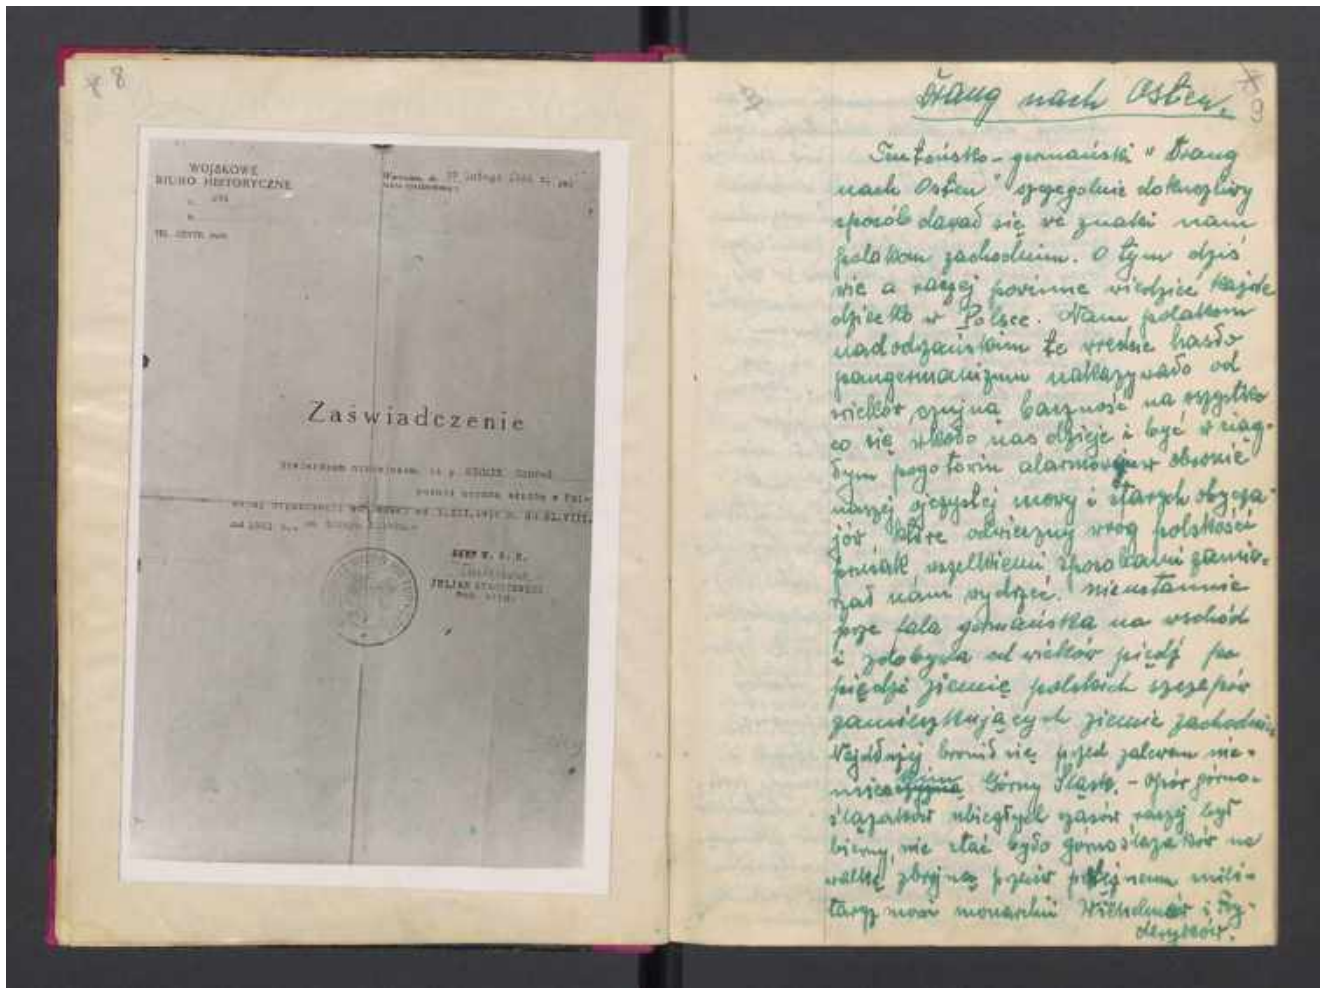 8
WOJSKOWE
BIURO HISTORYCZNE
Zaświadczenie
SZEF W. B. H.
JULJAN
9
Drang nach Osten.
Teutońsko-germański "Drang
nach Osten" szczegolnie dokuczliwy
sposób dawał się we znaki nam
polakom zachodnim. O tym dziś
wie a raczej powinne wiedzieć każde
dziecko w Polsce. Nam polakom
nadodrzańskim te wredne hasło
pangermanizmu nakazywało od
wieków, czujną baczność na wszystko
co się wkoło nas dzieje i być w ciąg-
łym pogotowiu alarmowym w obronie
naszej ojczystej mowy i starych obycza-
jów które odwieczny wróg polskości
prusak wszelkiemi sposobami zamie-
rzał nám wydrzeć. nieustannie
prze fala germańska na wschód
i zdobywa od wieków piędź po
piędzi ziemię polskich szczepów
zamieszkujących ziemie zachodnie.
Najdłużej bronił się przed zalewem nie-
mieckim Górny Śląsk. - Opór górno-
ślązaków ubiegłych czasów raczej był
bierny, nie stać było górnoślązaków na
walkę zbrojną przeciw potężnemu mili-
taryzmowi monarchii Wilhelmów i Fry-
deryków.